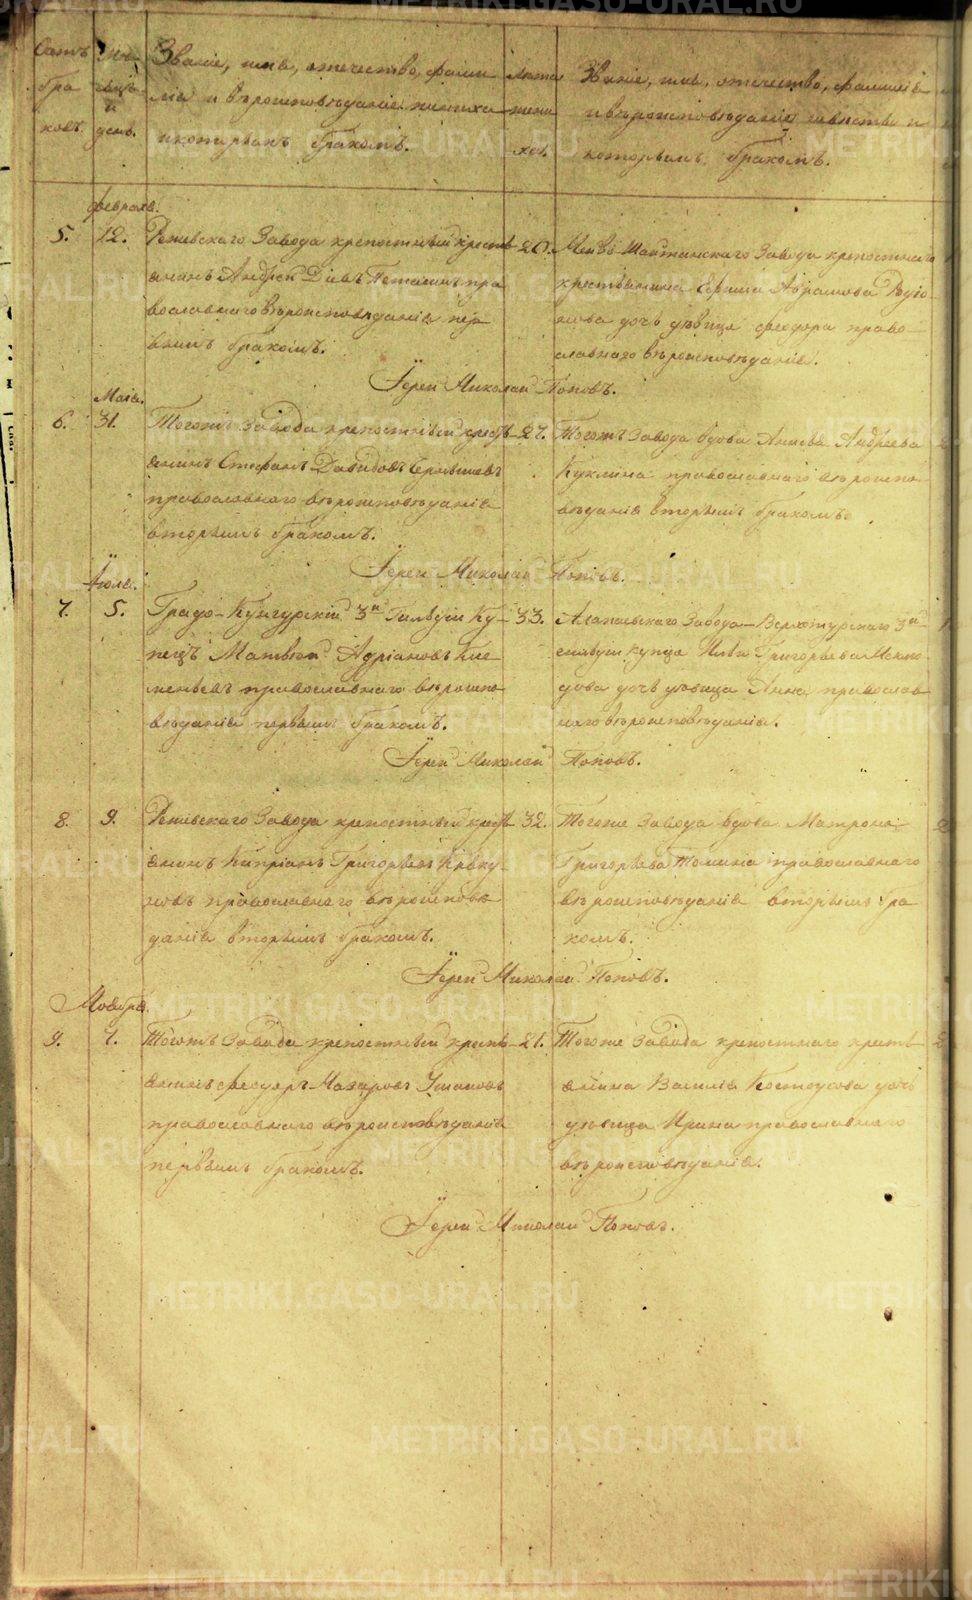 Счетъ бра ковъ.
Мѣ сяцъ и день.
Званіе, имя, отечество, фами
лія и вѣроисповѣданіе жениха
и которымъ бракомъ.
Лѣта жени ха.
Званіе, имя, отечество, фамилія
и вѣроисповѣданіе невѣсты и
которымъ бракомъ.
Февраля.
5. 12. Режевскаго Завода крепостный кресть
янинъ Андрей Петалинъ пра
вославнаго вѣроисповѣданія пер
вымъ бракомъ.
20.
Шайтанскаго Завода крепостнаго
крестьянина Аврамова Родіо
нова дочь дѣвица Феодора право
славнаго вѣроисповѣданія.
Іерей Николай Поповъ.
Маія.
6. 31. Тогожъ Завода крепостный кресть
янинъ Стефанъ Давидовъ Чернышевъ
православнаго вѣроисповѣданія
вторымъ бракомъ.
27.
Тогожъ Завода вдова Андреева
Куклина православнаго вѣроиспо
вѣданія вторымъ бракомъ.
Іерей Николай Поповъ.
Іюля.
7. 5. Градо-Кунгурскій 3й Гильдіи Ку
пецъ Матвѣй Адріановъ Кле
ментьевъ православнаго вѣроиспо
вѣданія первымъ бракомъ.
33.
Алапаевскаго Завода Верхотурскаго 3й
гильдіи купца Ильи Григорьева
дочь дѣвица Анна православ
наго вѣроисповѣданія.
Іерей Николай Поповъ.
8. 9. Режевскаго Завода крепостный кресть
янинъ Кипріанъ Григорьевъ
православнаго вѣроисповѣ
данія вторымъ бракомъ.
32.
Тогоже Завода вдова Матрона
Григорьева Томина православнаго
вѣроисповѣданія вторымъ бра
комъ.
Іерей Николай Поповъ.
Ноября.
9. 7. Тогожъ Завода крепостный кресть
янинъ Феодоръ Назаровъ Ушаковъ
православнаго вѣроисповѣданія
первымъ бракомъ.
21.
Тогоже Завода крепостнаго кресть
янина Василія Костоусова дочь
дѣвица Ирина православнаго
вѣроисповѣданія.
Іерей Николай Поповъ.
METRIKI.GASO-URAL.RU